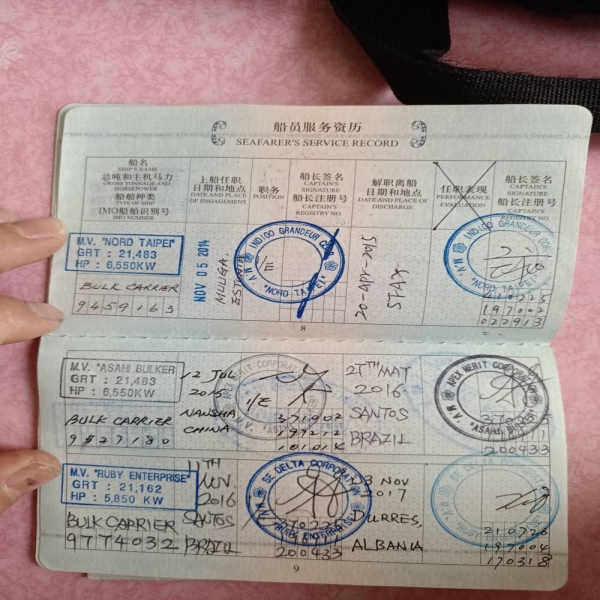 船员服务资历
SEAFARER'S SERVICE RECORD
船名
SHIP'S NAME
总吨和主机马力
GROSS TONNAGE AND
HORSEPOWER
船舶种类
TYPE OF SHIP
IMO船舶识别号
IMO NUMBER
上船任职
日期和地点
DATE AND PLACE
OF ENGAGEMENT
职务
POSITION
船长签名
CAPTAIN'S
SIGNATURE
船长注册号
CAPTAIN'S
REGISTRY NO.
解职离船
日期和地点
DATE AND PLACE OF
DISCHARGE
任职表现
PERFORMANCE
EVALUATION
船长签名
CAPTAIN'S
SIGNATURE
船长注册号
CAPTAIN'S
REGISTRY NO.
M.V. "NORD TAIPEI"
GRT : 21,483
HP : 6,550KW
BULK CARRIER
9459163
NOV 05 2014
MUUGA
INDIGO GRANDEUR CORP.
M.V. "NORD TAIPEI"
20-APR-2015
INDIGO GRANDEUR CORP.
M.V. "NORD TAIPEI"
410225
197002
022913
8
M.V. "ASAHI BULKER"
GRT : 21,483
HP : 6,550KW
BULK CARRIER
9527180
12 JUL
2015
NANSHA
CHINA
APEX MERIT CORPORATION
2/E
MAY
2016
SANTOS
BRAZIL
APEX MERIT CORPORATION
M.V. "ASAHI BULKER"
200433
M.V. "RUBY ENTERPRISE"
GRT : 21,162
HP : 5,850 KW
BULK CARRIER
9774032
2016
SANTOS
BRAZIL
SE DELTA CORPORATION
M.V. "RUBY ENTERPRISE"
200433
NOV
2017
DURRES,
ALBANIA
SE DELTA CORPORATION
210726
197004
170318
9